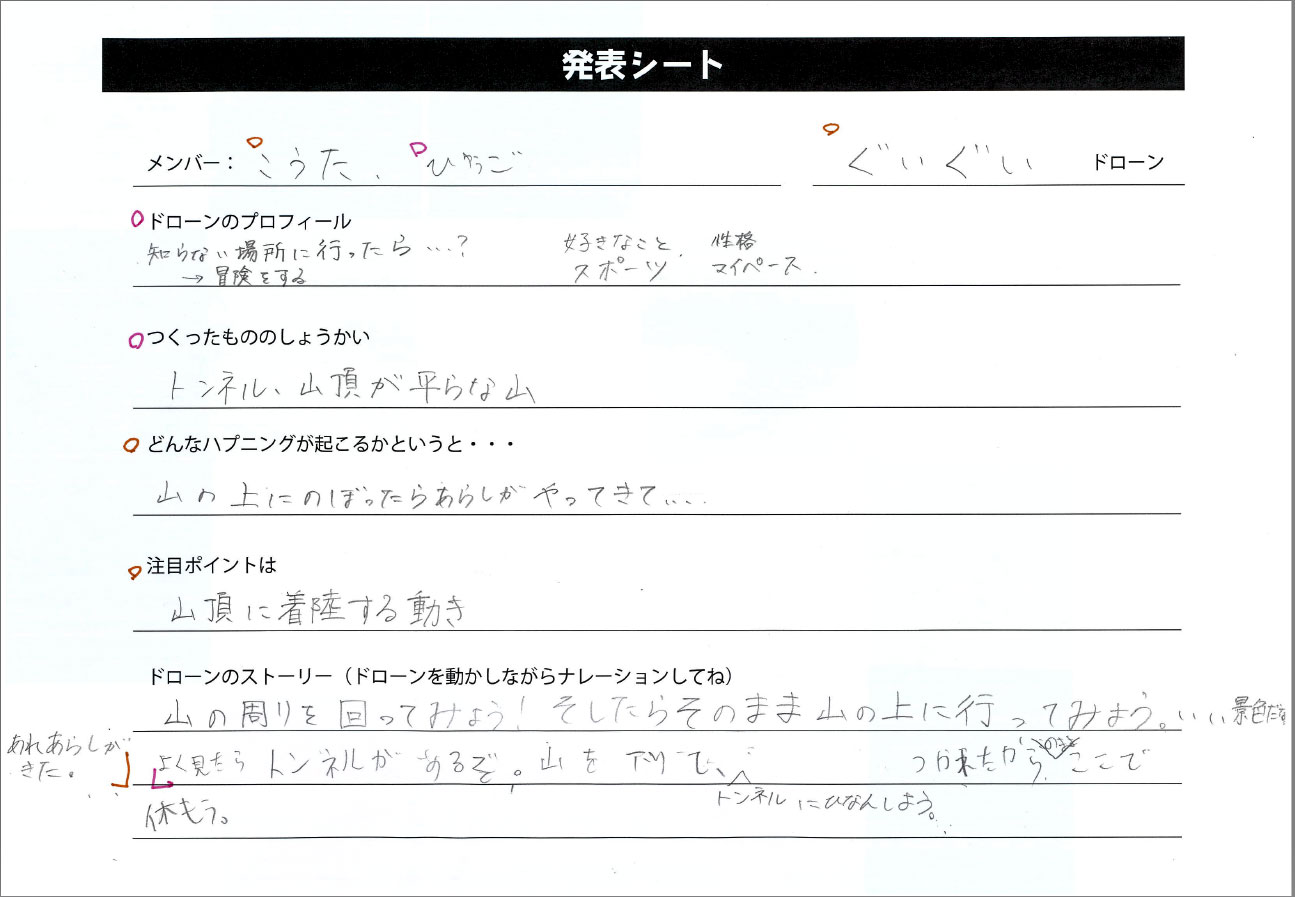 発表シート
メンバー： こうた、ひゅうご ぐいぐい ドローン
ドローンのプロフィール
知らない場所に行ったら…？ 好きなこと、 性格
→冒険をする スポーツ マイペース.
つくったもののしょうかい
トンネル、山頂が平らな山
どんなハプニングが起こるかというと・・・
山の上にのぼったらあらしがやってきて….
注目ポイントは
山頂に着陸する動き
ドローンのストーリー（ドローンを動かしながらナレーションしてね）
山の周りを回ってみよう！そしたらそのまま山の上に行ってみよう。いい景色だな
あれあらしが
きた。
よく見たらトンネルがあるぞ。山を下りて、 つかれたから ここで
トンネルにひなんしよう。
休もう。